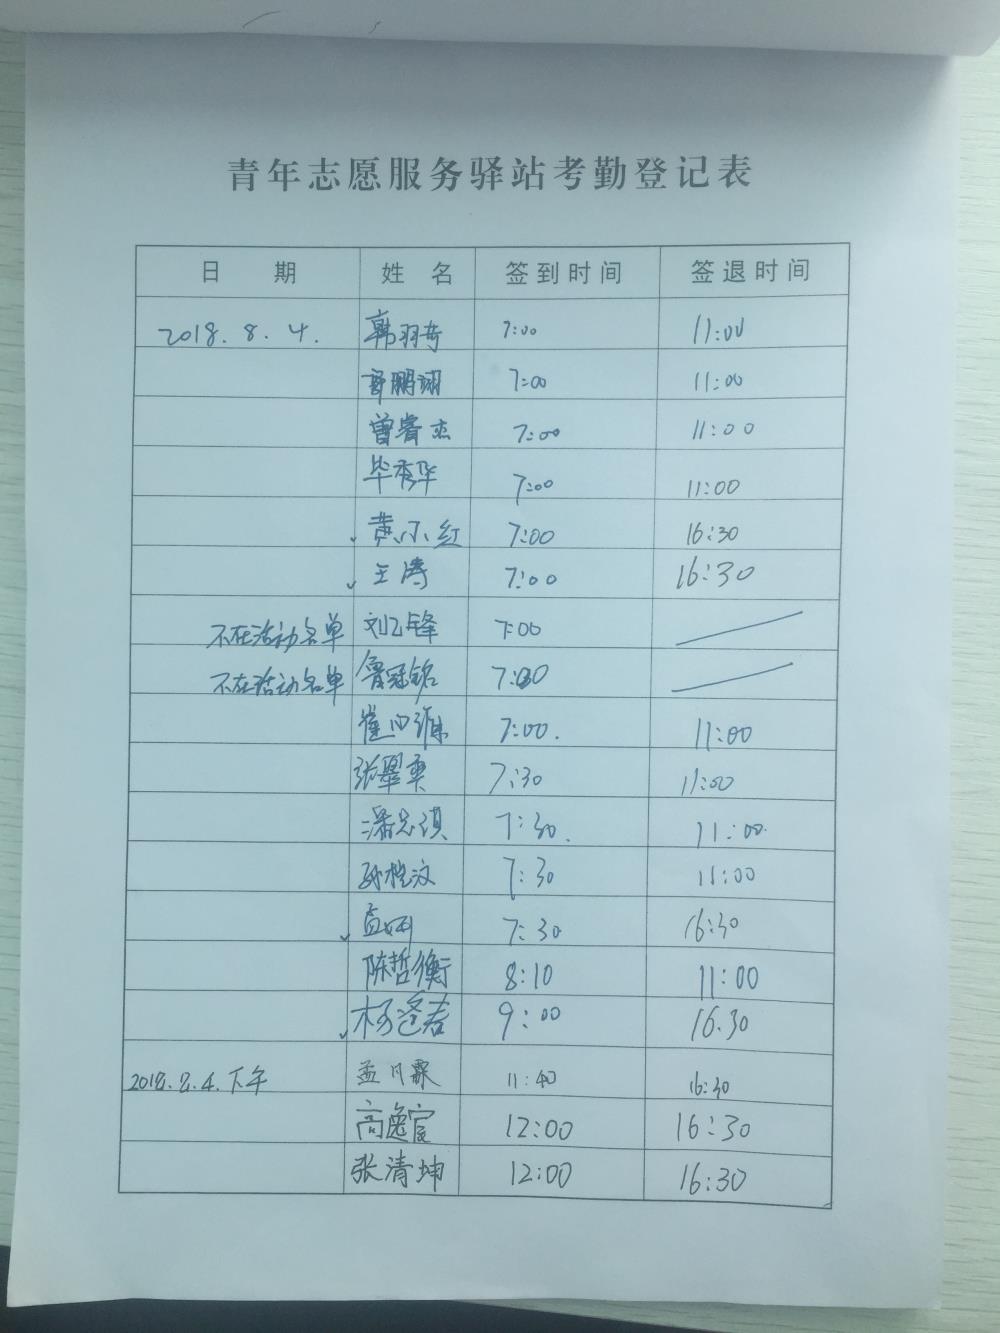 青年志愿服务驿站考勤登记表
日 期 姓 名 签到时间 签退时间
2018.8.4. 韩羽奇 7:00 11:00
鹏翊 7:00 11:00
曾睿杰 7:00 11:00
毕秀华 7:00 11:00
黄小红 7:00 16:30
王涛 7:00 16:30
不在活动名单 刘乙锋 7:00
不在活动名单 冠铭
崔 7:00. 11:00
张翠 7:30 11:00
潘 7:30. 11:00.
孙 7:30 11:00
孟 7:30 16:30
陈哲衡 8:10 11:00
杨逢春 9:00 16.30
2018.8.4.下午 孟 霖 11:40 16:30
高逸宸 12:00 16:30
张清坤 12:00 16:30